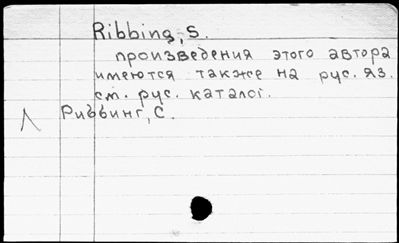 Ribbing, S.
произведения этого автора
имеются также на рус. яз.
см. рус. каталог.
Риббинг, С.